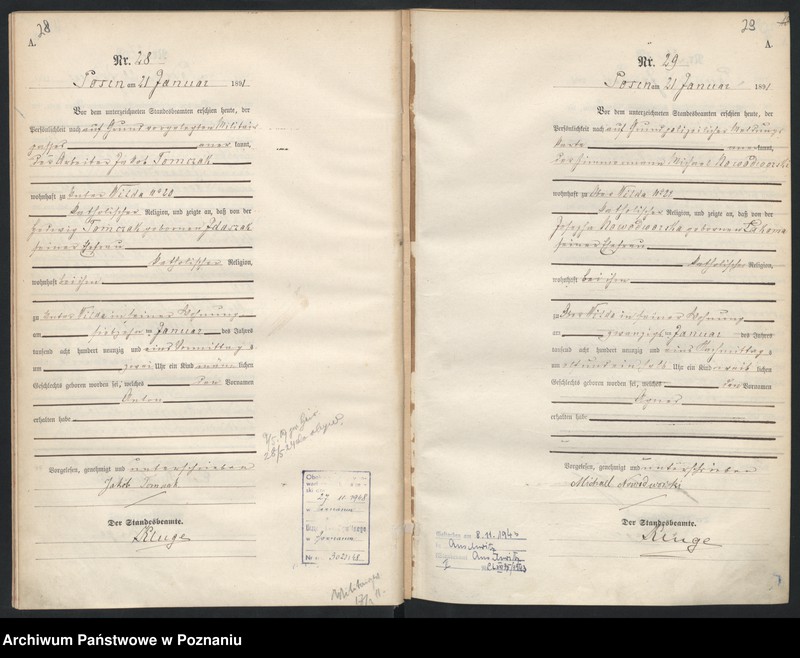 28
A.
Nr. 28
Posen am 21 Januar 1891
Vor dem unterzeichneten Standesbeamten erschien heute, der
Persönlichkeit nach auf Grund vorgelegten Militär
passes kannt,
der Arbeiter Jakob Tomczak
wohnhaft zu Unter Wilda No 20
katholischer Religion, und zeigte an, daß von der
Hedwig Tomczak geborenen
seiner Ehefrau
katholischer Religion,
wohnhaft bei ihm
zu Unter Wilda in seiner Wohnung
am siebzehn ten Januar des Jahres
tausend acht hundert neunzig und eins Vormittag s
um zwei Uhr ein Kind männ lichen
Geschlechts geboren worden sei, welches den Vornamen
Anton
erhalten habe
Vorgelesen, genehmigt und unterschrieben
Jakob Tomczak
Der Standesbeamte.
Kluge
27 11 1968
29
A.
Nr. 29
Posen am 21 Januar 1891
Vor dem unterzeichneten Standesbeamten erschien heute, der
Persönlichkeit nach auf Grund polizeilicher Meldungs
karte kannt,
der Zimmermann Michael Nowodworski
wohnhaft zu Ober Wilda No 22
katholischer Religion, und zeigte an, daß von der
Josepha Nowodworska geborenen
seiner Ehefrau
katholischer Religion,
wohnhaft bei ihm
zu Ober Wilda in seiner Wohnung
am zwanzigsten Januar des Jahres
tausend acht hundert neunzig und eins Nachmittag s
um elf und ein halb Uhr ein Kind weib lichen
Geschlechts geboren worden sei, welches den Vornamen
Agnes
erhalten habe
Vorgelesen, genehmigt und unterschrieben
Michael Nowodworski
Der Standesbeamte.
Kluge
Auschwitz
Auschwitz
Archiwum Państwowe w Poznaniu